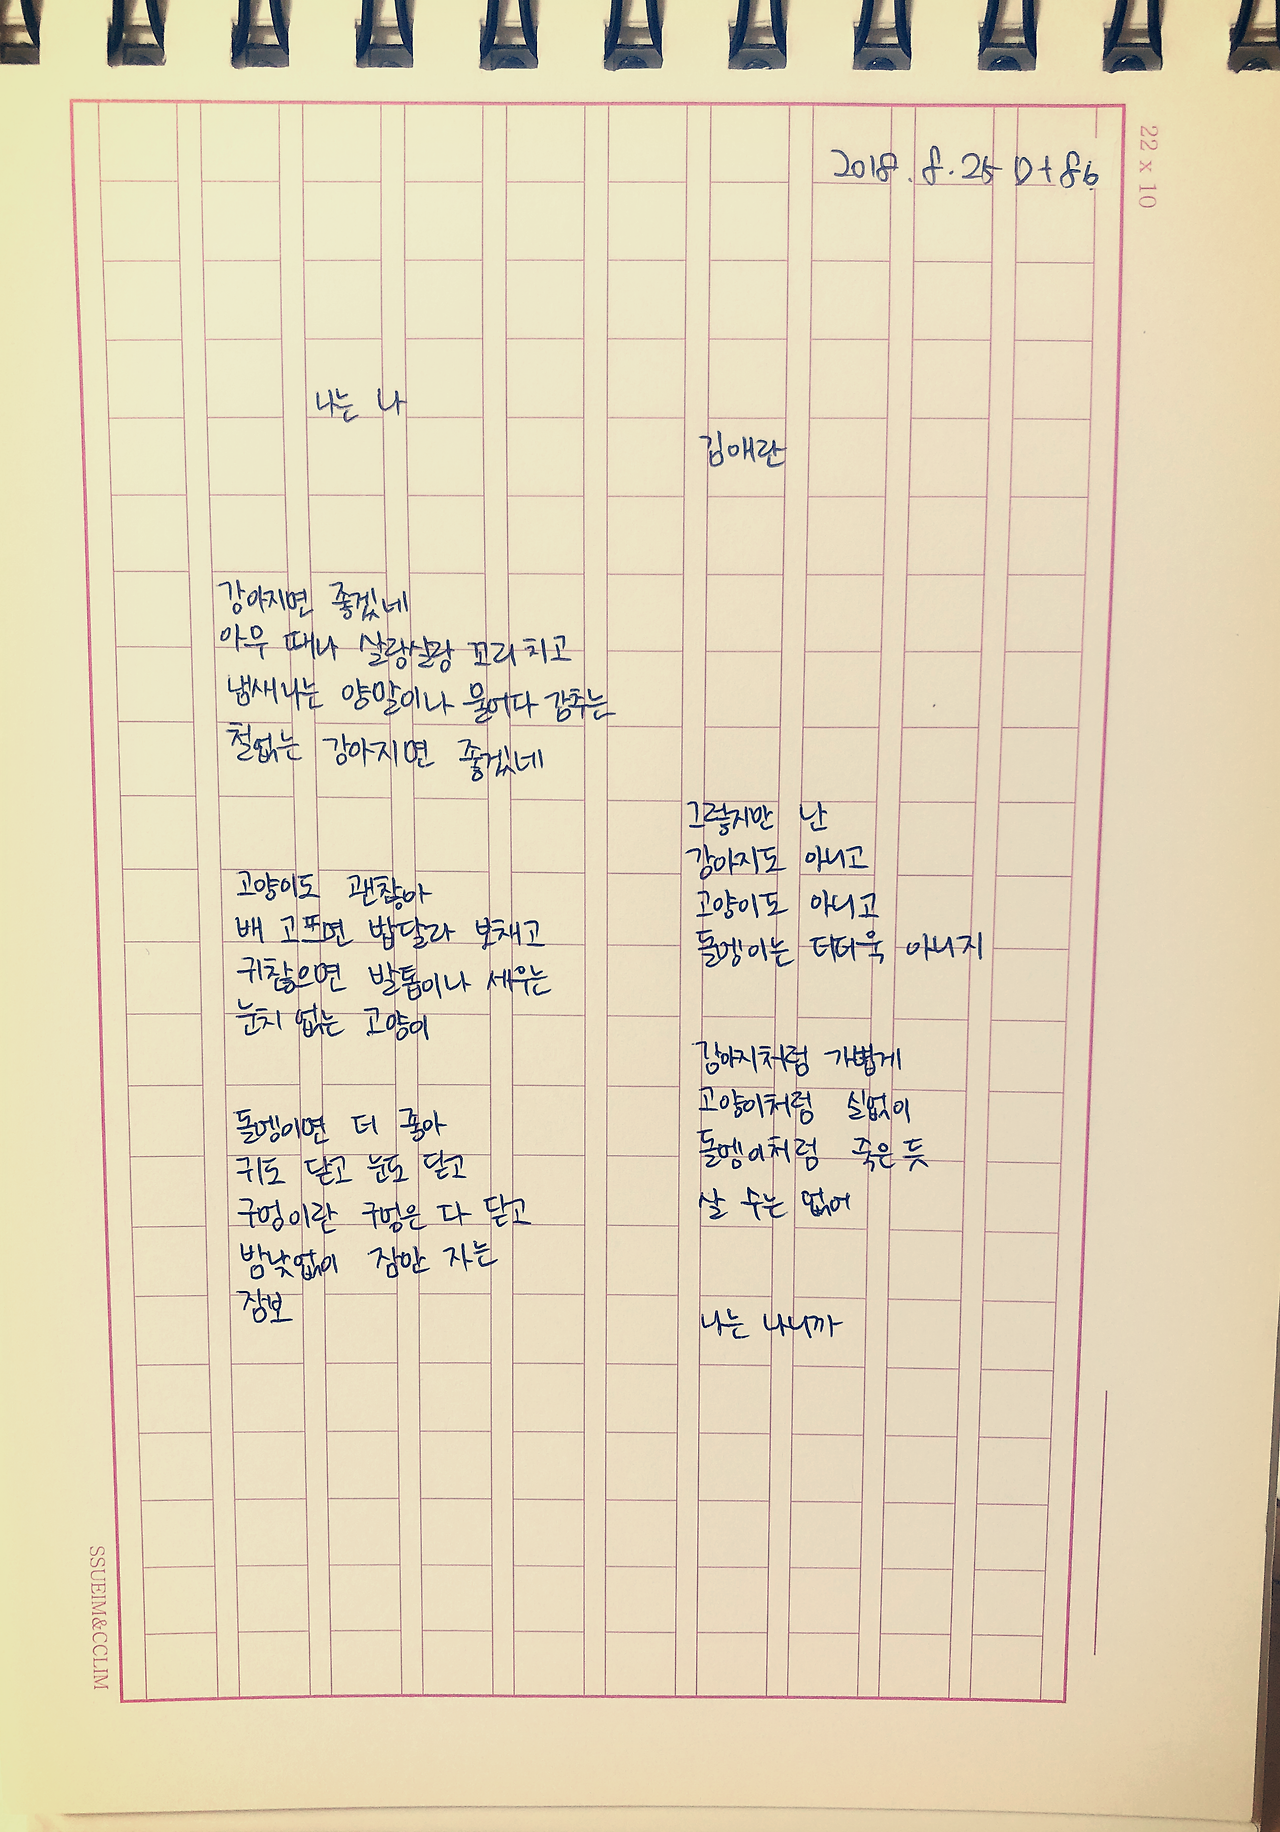 2018. 8. 25 D+86
22 x 10
나는 나
김애란
강아지면 좋겠네
아무 때나 살랑살랑 꼬리 치고
냄새나는 양말이나 물어다 감추는
철없는 강아지면 좋겠네
고양이도 괜찮아
배 고프면 밥달라 보채고
귀찮으면 발톱이나 세우는
눈치 없는 고양이
돌멩이면 더 좋아
귀도 닫고 눈도 닫고
구멍이란 구멍은 다 닫고
밤낮없이 잠만 자는
잠보
그렇지만 난
강아지도 아니고
고양이도 아니고
돌멩이는 더더욱 아니지
강아지처럼 가볍게
고양이처럼 실없이
돌멩이처럼 죽은 듯
살 수는 없어
나는 나니까
SSUEIM&CCLIM